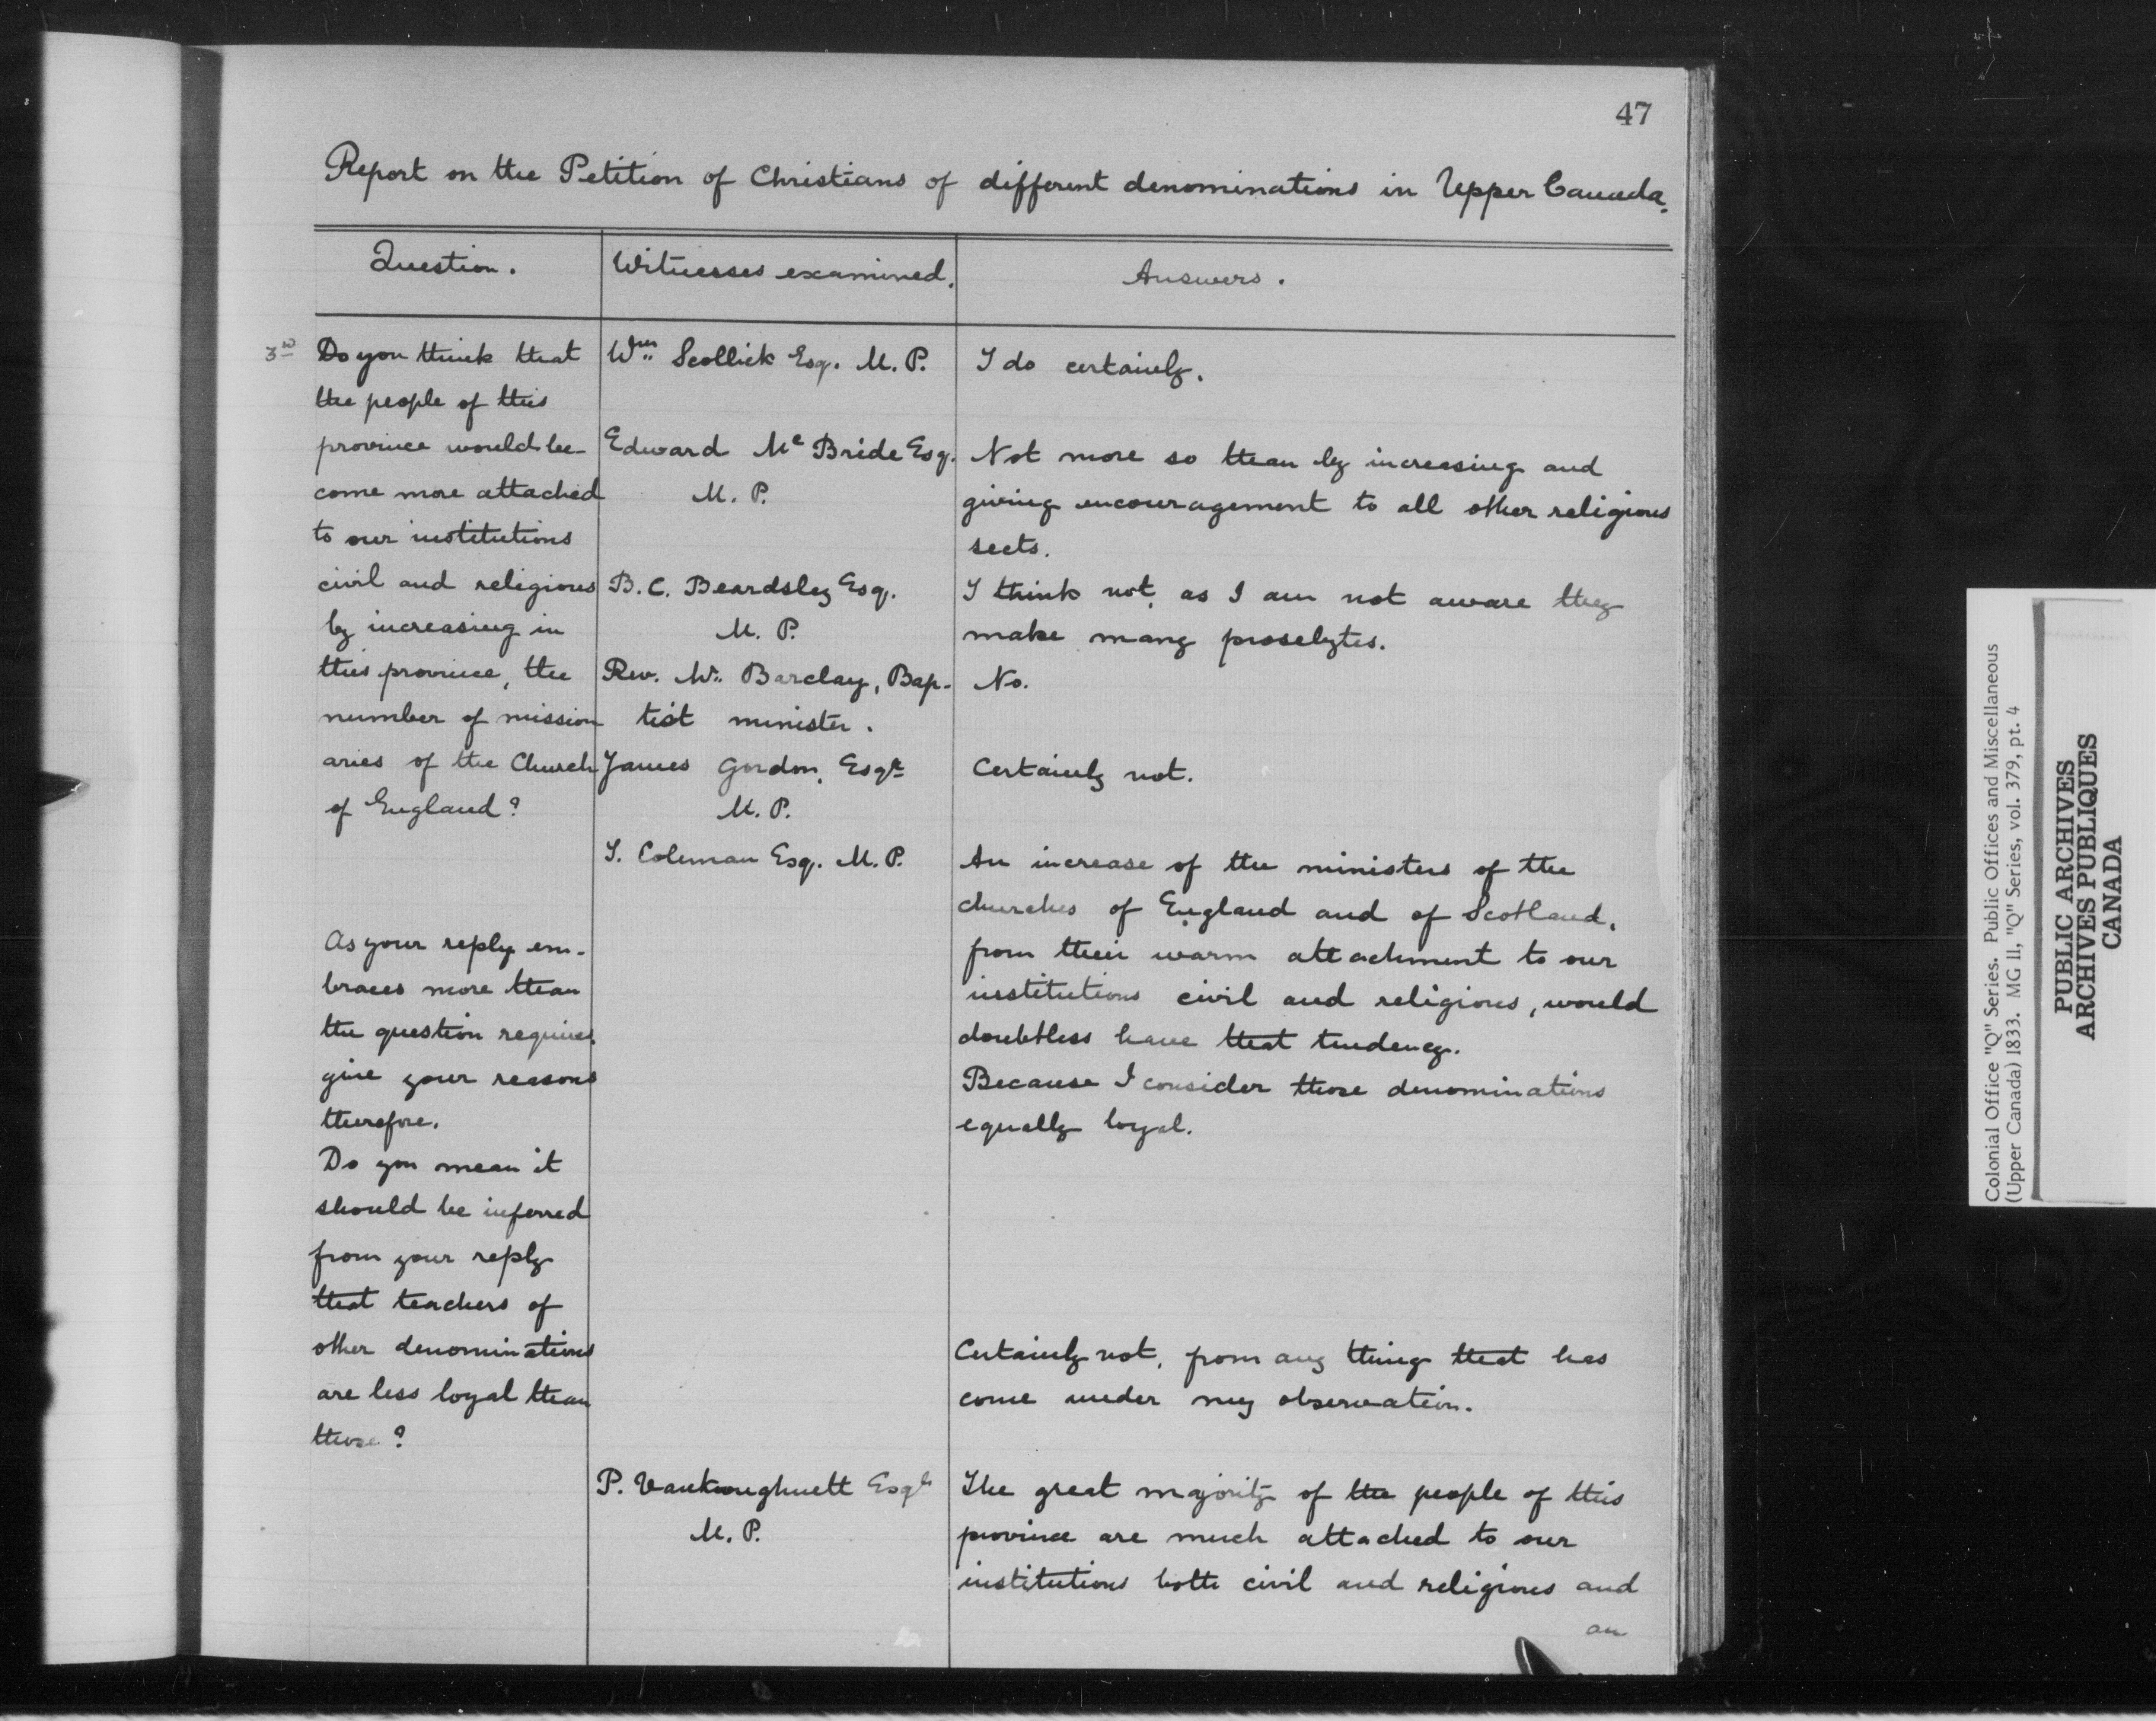 47
Report on the Petition of Christians of different denominations in Upper Canada.
Question.
Witnesses examined.
Answers.
3rd Do you think that
the people of this
province would be-
come more attached
to our institutions
civil and religious
by increasing in
this province, the
number of mission
aries of the Church
of England?
Wm. Scollick Esq. M. P.
I do certainly.
Edward Mc Bride Esq.
M. P.
Not more so than by increasing and
giving encouragement to all other religious
sects.
B. C. Beardsley Esq.
M. P.
I think not, as I am not aware they
make many proselytes.
Rev. Mr. Barclay, Bap-
tist minister.
No.
James Gordon, Esqr
M. P.
Certainly not.
T. Coleman Esq. M. P.
An increase of the ministers of the
churches of England and of Scotland,
from their warm attachment to our
institutions civil and religious, would
doubtless have that tendency.
As your reply em-
braces more than
the question requires,
give your reasons
therefore.
Because I consider those denominations
equally loyal.
Do you mean it
should be inferred
from your reply
that teachers of
other denominations
are less loyal than
those?
Certainly not, from any thing that has
come under my observation.
P. Vankoughnett Esqr
M. P.
The great majority of the people of this
province are much attached to our
institutions both civil and religious and
an
Colonial Office "Q" Series. Public Offices and Miscellaneous
(Upper Canada) 1833. MG 11, "Q" Series, vol. 379, pt. 4
PUBLIC ARCHIVES
ARCHIVES PUBLIQUES
CANADA